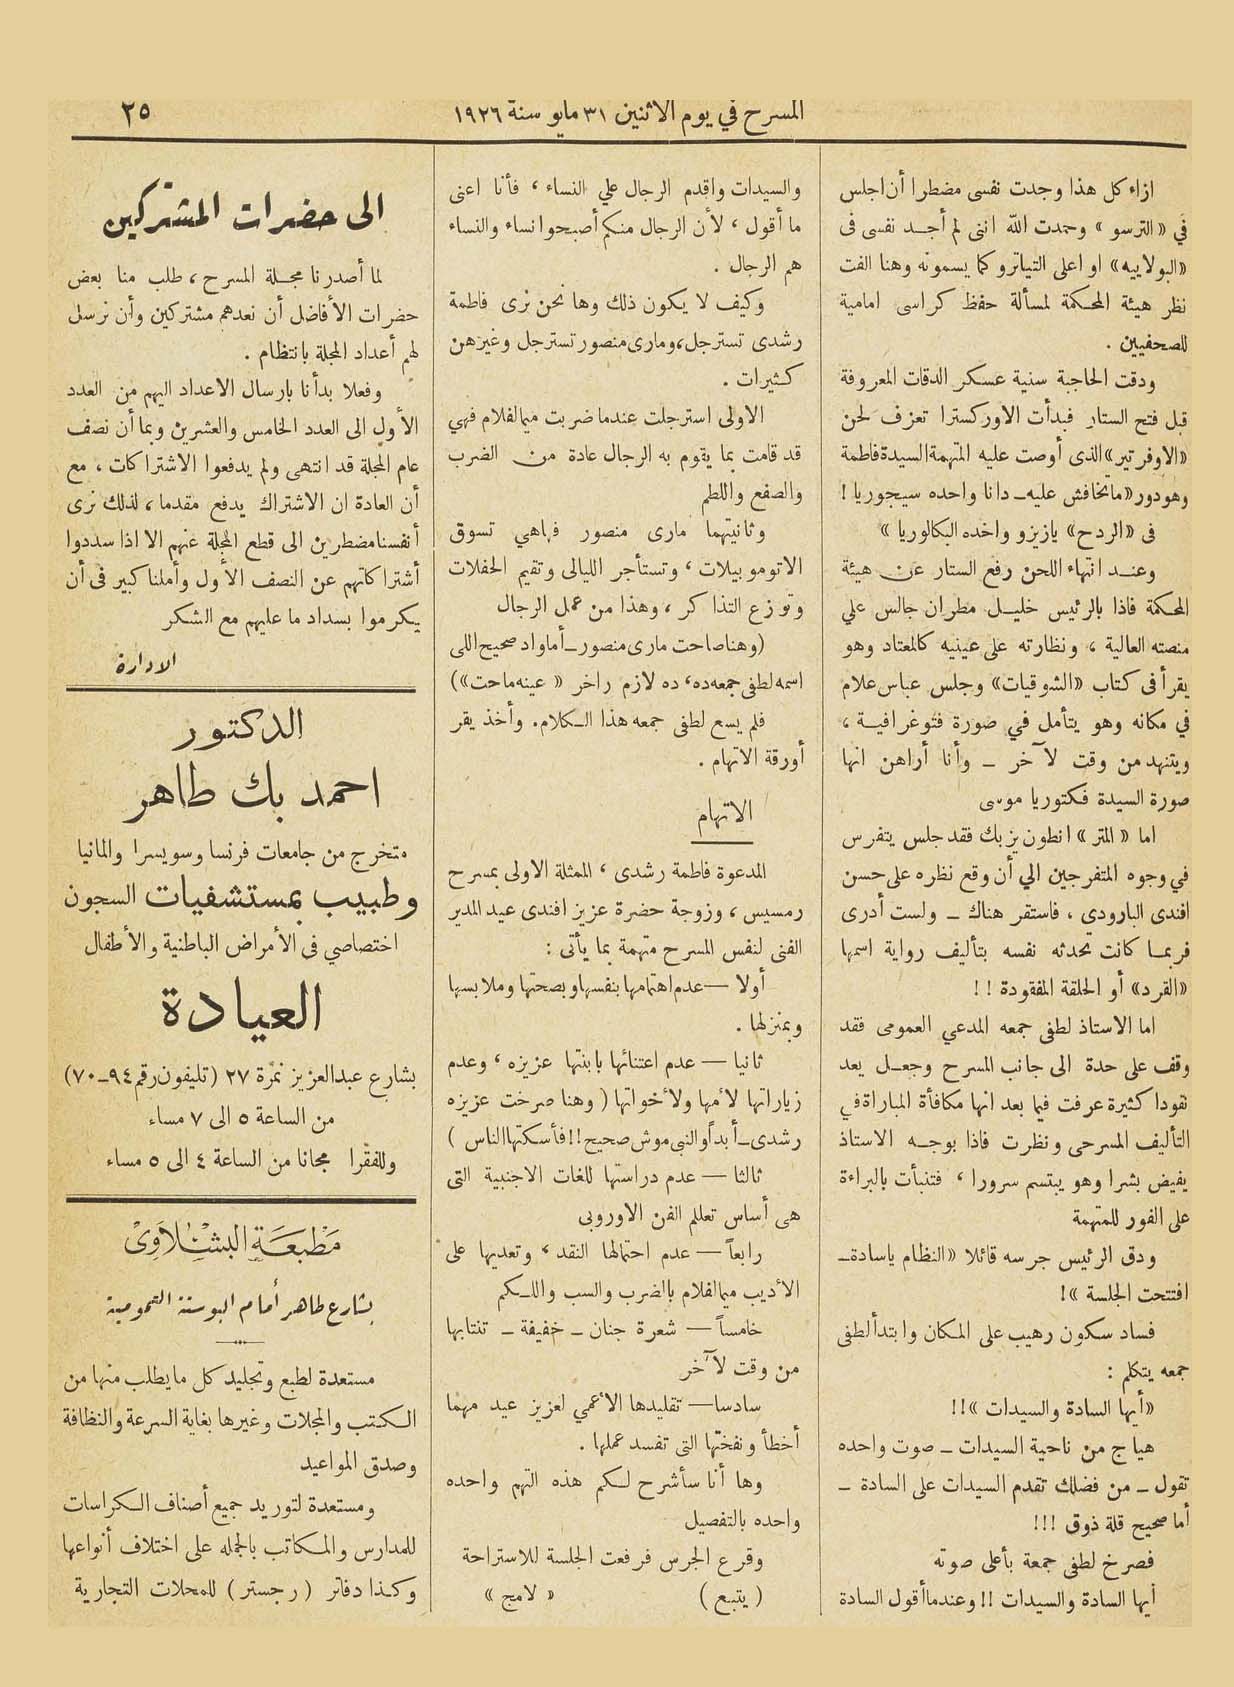 المسرح في يوم الاثنين ٣١ مايو سنة ١٩٢٦
٢٥
ازاء كل هذا وجدت نفسى مضطرا أن اجلس
في «الترسو» وحمدت الله اننى لم أجد نفسى فى
«البولاييه» او اعلى التياترو كما يسمونه وهنا الفت
نظر هيئة المحكمة لمسألة حفظ كراسى امامية
للصحفيين .
ودقت الحاجبة سنية عسكر الدقات المعروفة
قبل فتح الستار فبدأت الاوركسترا تعزف لحن
«الاوفرتير» الذى أوصت عليه المتهمة السيدة فاطمة
وهو دور «ماتخافش عليه ــ دانا واحده سيجوريا !
فى «الردح» يازيزو واخده البكالوريا »
وعند انتهاء اللحن رفع الستار عن هيئة
المحكمة فاذا بالرئيس خليل مطران جالس علي
منصته العالية ، ونظارته على عينيه كالمعتاد وهو
يقرأ فى كتاب «الشوقيات» وجلس عباس علام
في مكانه وهو يتأمل في صورة فتوغرافية ،
ويتنهد من وقت لآخر ــ وأنا أراهن انها
صورة السيدة فكتوريا موسى
اما «المتر» انطون يزبك فقد جلس يتفرس
في وجوه المتفرجين الي أن وقع نظره على حسن
افندى البارودي ، فاستقر هناك ــ ولست أدرى
فربما كانت تحدثه نفسه بتأليف رواية اسمها
«القرد» أو الحلقة المفقودة ! !
اما الاستاذ لطفى جمعه المدعي العمومى فقد
وقف على حدة الى جانب المسرح وجعل يعد
نقودا كثيرة عرفت فيما بعد انها مكافأة المباراة في
التأليف المسرحى ونظرت فاذا بوجه الاستاذ
يفيض بشرا وهو يبتسم سرورا ، فتنبأت بالبراءة
على الفور للمتهمة
ودق الرئيس جرسه قائلا «النظام ياسادة ــ
افتتحت الجلسة »!
فساد سكون رهيب على المكان وابتدأ لطفى
جمعه يتكلم :
«أيها السادة والسيدات »!!
هياج من ناحية السيدات ــ صوت واحده
تقول ــ من فضلك تقدم السيدات على السادة ــ
أما صحيح قلة ذوق !!!
فصرخ لطفى جمعة بأعلى صوته
أيها السادة والسيدات !! وعندما أقول السادة
والسيدات واقدم الرجال علي النساء ، فأنا اعنى
ما أقول ، لأن الرجال منكم أصبحوا نساء والنساء
هم الرجال .
وكيف لا يكون ذلك وها نحن نرى فاطمة
رشدى تسترجل، ومارى منصور تسترجل وغيرهن
كثيرات .
الاولى استرجلت عندما ضربت ميمالفلام فهي
قد قامت بما يقوم به الرجال عادة من الضرب
والصفع واللطم
وثانيتهما مارى منصور فهاهي تسوق
الاتوموبيلات ، وتستأجر الليالى وتقيم الحفلات
وتوزع التذاكر ، وهذا من عمل الرجال
(وهنا صاحت مارى منصور ــ أما واد صحيح اللى
اسمه لطفى جمعه ده، ده لازم راخر «عينه ماحت»)
فلم يسع لطفى جمعه هذا الكلام. وأخذ يقر
أورقة الاتهام .
الاتهام
المدعوة فاطمة رشدى ، الممثلة الاولى بمسرح
رمسيس ، وزوجة حضرة عزيز افندى عيد المدير
الفنى لنفس المسرح متهمة بما يأتى :
أولا — عدم اهتمامها بنفسها وبصحتها وملابسها
وبمنزلها .
ثانيا — عدم اعتنائها بابنتها عزيزه ، وعدم
زياراتها لأمها ولأخواتها (وهنا صرخت عزيزه
رشدى ــ أبداً والنبى موش صحيح !! فأسكتها الناس )
ثالثا — عدم دراستها للغات الاجنبية التى
هى أساس تعللم الفن الاوروبى
رابعاً — عدم احتمالها النقد ، وتعديها على
الأديب ميمالفلام بالضرب والسب واللكم
خامساً — شعرة جنان ــ خفيفة ــ تنتابها
من وقت لآخر
سادسا — تقليدها الأعمي لعزيز عيد مهما
أخطأ ونفختها التى تفسد عملها .
وها أنا سأشرح لكم هذه التهم واحده
واحده بالتفصيل
وقرع الجرس فرفعت الجلسة للاستراحة
( يتبع ) « لامج »
الى حضرات المشتركين
لما أصدرنا مجلة المسرح ، طلب منا بعض
حضرات الأفاضل أن نعدهم مشتركين وأن نرسل
لهم أعداد المجلة بانتظام .
وفعلا بدأنا بارسال الاعداد اليهم من العدد
الأول الى العدد الخامس والعشرين وبما أن نصف
عام المجلة قد انتهى ولم يدفعوا الاشتراكات ، مع
أن العادة ان الاشتراك يدفع مقدما ، لذلك نرى
أنفسنا مضطرين الى قطع المجلة عنهم الا اذا سددوا
أشتراكاتهم عن النصف الأول وأملنا كبير فى أن
يكرموا بسداد ما عليهم مع الشكر
الادارة
الدكتور
احمد بك طاهر
متخرج من جامعات فرنسا وسويسرا والمانيا
وطبيب بمستشفيات السجون
اختصاصي فى الأمراض الباطنية والأطفال
العيادة
بشارع عبدالعزيز نمرة ٢٧ (تليفون رقم ٩٤ــ٧٠)
من الساعة ٥ الى ٧ مساء
وللفقرا مجانا من الساعة ٤ الى ٥ مساء
مَطبَعَة البشلاوى
بشارع طاهر أمام البوستة العمومية
مستعدة لطبع وتجليد كل ما يطلب منها من
الكتب والمجلات وغيرها بغاية السرعة والنظافة
وصدق المواعيد
ومستعدة لتوريد جميع أصناف الكراسات
للمدارس والمكاتب بالجمله على اختلاف أنواعها
وكذا دفاتر ( رجستر ) للمحلات التجارية